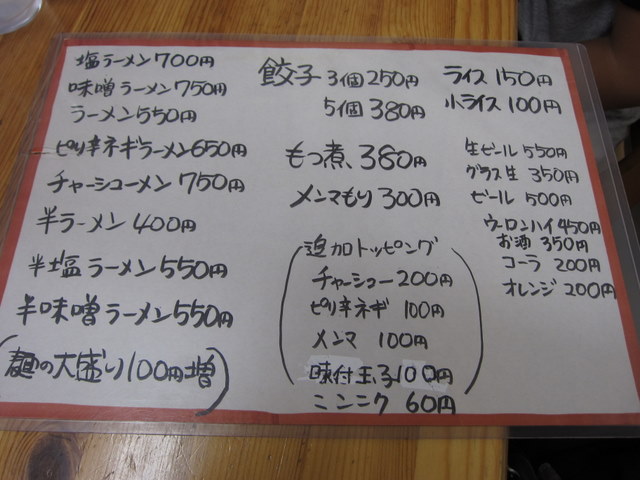 塩ラーメン700円
味噌ラーメン750円
ラーメン550円
ピリ辛ネギラーメン650円
チャーシューメン750円
半ラーメン400円
半塩ラーメン550円
半味噌ラーメン550円
(麺の大盛り100円増)
餃子3個250円
5個380円
もつ煮、380円
メンマもり300円
追加トッピング
チャーシュー200円
ピリ辛ネギ100円
メンマ100円
味付玉子100円
ニンニク60円
ライス150円
小ライス100円
生ビール550円
グラス生350円
ビール500円
ウーロンハイ450円
お酒350円
コーラ200円
オレンジ200円